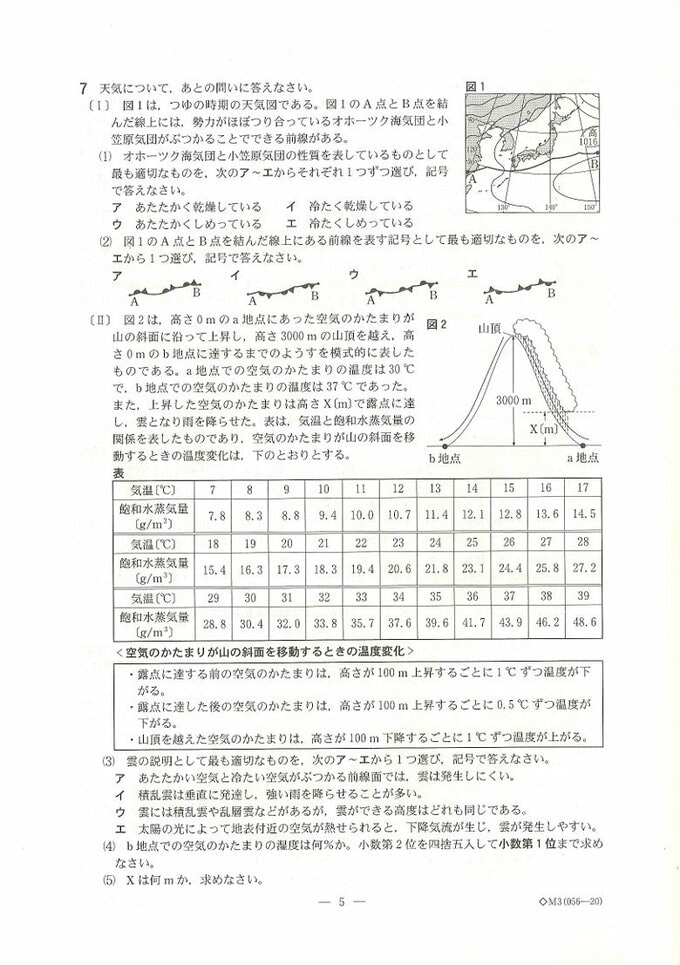 7 天気について，あとの問いに答えなさい。
〔Ⅰ〕 図1は，つゆの時期の天気図である。図1のA点とB点を結
んだ線上には，勢力がほぼつり合っているオホーツク海気団と小
笠原気団がぶつかることでできる前線がある。
図1
高
1016
A
B
130°
140°
150°
(1) オホーツク海気団と小笠原気団の性質を表しているものとして
最も適切なものを，次のア～エからそれぞれ1つずつ選び，記号
で答えなさい。
ア あたたかく乾燥している イ 冷たく乾燥している
ウ あたたかくしめっている エ 冷たくしめっている
(2) 図1のA点とB点を結んだ線上にある前線を表す記号として最も適切なものを，次のア～
エから1つ選び，記号で答えなさい。
ア イ ウ エ
A B A B A B A B
〔Ⅱ〕 図2は，高さ0mのa地点にあった空気のかたまりが
山の斜面に沿って上昇し，高さ3000mの山頂を越え，高
さ0mのb地点に達するまでのようすを模式的に表した
ものである。a地点での空気のかたまりの温度は30℃
で，b地点での空気のかたまりの温度は37℃であった。
また，上昇した空気のかたまりは高さX〔m〕で露点に達
し，雲となり雨を降らせた。表は，気温と飽和水蒸気量の
関係を表したものであり，空気のかたまりが山の斜面を移
動するときの温度変化は，下のとおりとする。
図2
山頂
3000 m
X〔m〕
b 地点
a 地点
表
気温〔℃〕 7 8 9 10 11 12 13 14 15 16 17
飽和水蒸気量〔g/m³〕 7.8 8.3 8.8 9.4 10.0 10.7 11.4 12.1 12.8 13.6 14.5
気温〔℃〕 18 19 20 21 22 23 24 25 26 27 28
飽和水蒸気量〔g/m³〕 15.4 16.3 17.3 18.3 19.4 20.6 21.8 23.1 24.4 25.8 27.2
気温〔℃〕 29 30 31 32 33 34 35 36 37 38 39
飽和水蒸気量〔g/m³〕 28.8 30.4 32.0 33.8 35.7 37.6 39.6 41.7 43.9 46.2 48.6
＜空気のかたまりが山の斜面を移動するときの温度変化＞
・露点に達する前の空気のかたまりは，高さが100m上昇するごとに1℃ずつ温度が下
がる。
・露点に達した後の空気のかたまりは，高さが100m上昇するごとに0.5℃ずつ温度が
下がる。
・山頂を越えた空気のかたまりは，高さが100m下降するごとに1℃ずつ温度が上がる。
(3) 雲の説明として最も適切なものを，次のア～エから1つ選び，記号で答えなさい。
ア あたたかい空気と冷たい空気がぶつかる前線面では，雲は発生しにくい。
イ 積乱雲は垂直に発達し，強い雨を降らせることが多い。
ウ 雲には積乱雲や乱層雲などがあるが，雲ができる高度はどれも同じである。
エ 太陽の光によって地表付近の空気が熱せられると，下降気流が生じ，雲が発生しやすい。
(4) b地点での空気のかたまりの湿度は何％か。小数第2位を四捨五入して小数第1位まで求め
なさい。
(5) Xは何mか，求めなさい。
— 5 —
◇M3(056—20)